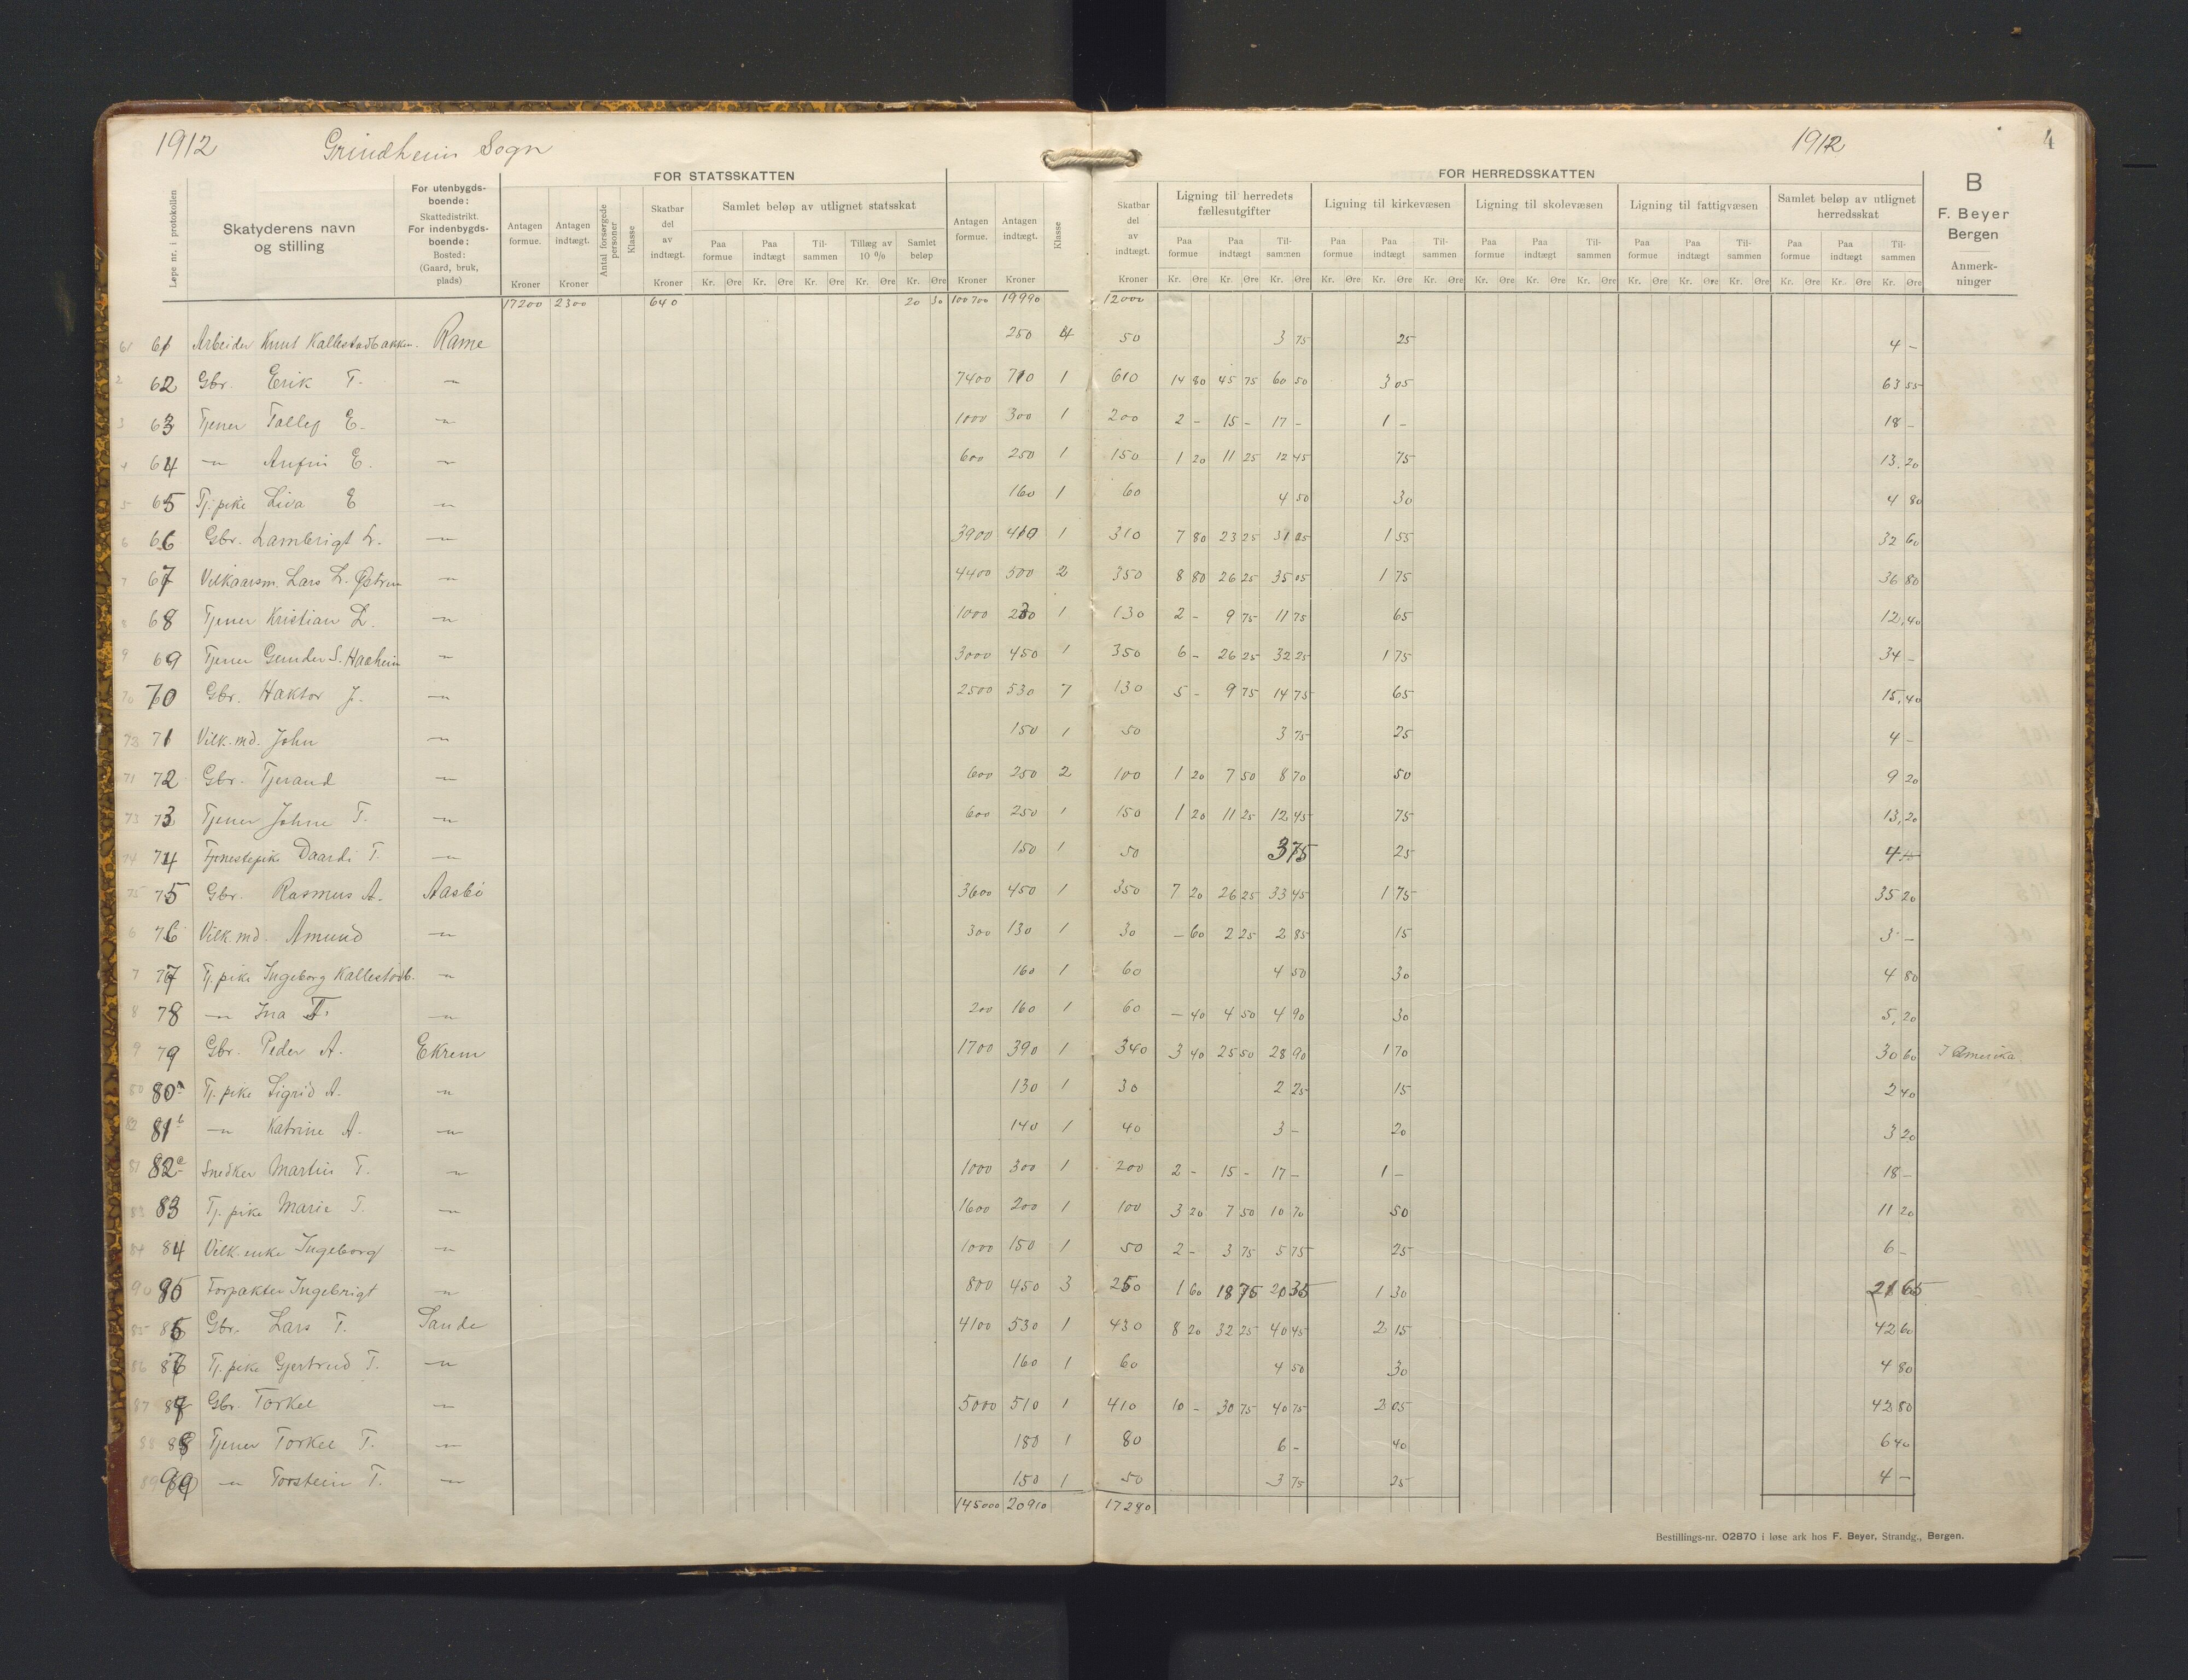 1912 Grindheim Sogn 1912 4
FOR STATSSKATTEN FOR HERREDSSKATTEN
Løpe nr. i protokollen
Skatyderens navn og stilling
For utenbygdsboende: Skattedistrikt. For indenbygdsboende: Bosted: (Gaard, bruk, plads)
Antagen formue. Kroner
Antagen indtægt. Kroner
Antal forsørgede personer
Klasse
Skatbar del av indtægt. Kroner
Samlet beløp av utlignet statsskat
Paa formue Kr. Øre
Paa indtægt Kr. Øre
Tilsammen Kr. Øre
Tillæg av 10 % Kr. Øre
Samlet beløp Kr. Øre
Antagen formue. Kroner
Antagen indtægt. Kroner
Klasse
Skatbar del av indtægt. Kroner
Ligning til herredets fællesutgifter
Paa formue Kr. Øre Paa indtægt Kr. Øre Tilsammen Kr. Øre
Ligning til kirkevæsen
Paa formue Kr. Øre Paa indtægt Kr. Øre Tilsammen Kr. Øre
Ligning til skolevæsen
Paa formue Kr. Øre Paa indtægt Kr. Øre Tilsammen Kr. Øre
Ligning til fattigvæsen
Paa formue Kr. Øre Paa indtægt Kr. Øre Tilsammen Kr. Øre
Samlet beløp av utlignet herredsskat
Paa formue Kr. Øre Paa indtægt Kr. Øre Tilsammen Kr. Øre
B
F. Beyer
Bergen
Anmerkninger
17200 2300 640 20 30 100700 19990 12000
61 61 Arbeider Knut Kallestadbakken. Rame 250 4 50 3 75 25 4 -
2 62 Gbr. Erik T. -"- 7400 710 1 610 14 80 45 75 60 50 3 05 63 55
3 63 Tjener Tallef E. -"- 1000 300 1 200 2 - 15 - 17 - 1 - 18 -
4 64 -"- Anfin E. -"- 600 250 1 150 1 20 11 25 12 45 75 13,20
5 65 Tj. pike Liva E -"- 160 1 60 4 50 30 4 80
6 66 Gbr. Lambrigt L. -"- 3900 410 1 310 7 80 23 25 31 05 1 55 32 60
7 67 Vilkaarsm. Lars L. Østrem -"- 4400 500 2 350 8 80 26 25 35 05 1 75 36 80
8 68 Tjener Kristian L. -"- 1000 230 1 130 2 - 9 75 11 75 65 12,40
9 69 Tjener Gunder S. Haaheim -"- 3000 450 1 350 6 - 26 25 32 25 1 75 34 -
70 70 Gbr. Haktor J. -"- 2500 530 7 130 5 - 9 75 14 75 65 15,40
73 71 Vilk. md. John -"- 150 1 50 3 75 25 4 -
71 72 Gbr. Tjerand -"- 600 250 2 100 1 20 7 50 8 70 50 9 20
73 73 Tjener Johne T. -"- 600 250 1 150 1 20 11 25 12 45 75 13,20
74 74 Tjenestepike Daardi T. -"- 150 1 50 3 75 25 4 -
75 75 Gbr. Rasmus A. Aasbö 3600 450 1 350 7 20 26 25 33 45 1 75 35 20
6 76 Vilk. md. Amund -"- 300 130 1 30 - 60 2 25 2 85 15 3 -
7 77 Tj. pike Ingeborg Kallestadb. -"- 160 1 60 4 50 30 4 80
8 78 -"- Ina T. -"- 200 160 1 60 - 40 4 50 4 90 30 5,20
9 79 Gbr. Peder A. Ekrem 1700 390 1 340 3 40 25 50 28 90 1 70 30 60 I Amerika
80 80a Tj. pike Sigrid A. -"- 130 1 30 2 25 15 2 40
82 81b -"- Katrine A. -"- 140 1 40 3 - 20 3 20
81 82c Snedker Martin T. -"- 1000 300 1 200 2 - 15 - 17 - 1 - 18 -
83 83 Tj. pike Marie T. -"- 1600 200 1 100 3 20 7 50 10 70 50 11 20
84 84 Vilk. enke Ingeborg -"- 1000 150 1 50 2 - 3 75 5 75 25 6 -
90 85 Forpakter Ingebrigt -"- 800 450 3 250 1 60 18 75 20 35 1 30 21 65
85 86 Gbr. Lars T. Sande 4100 530 1 430 8 20 32 25 40 45 2 15 42 60
86 87 Tj. pike Gjertrud T. -"- 160 1 60 4 50 30 4 80
87 88 Gbr. Torkel -"- 5000 510 1 410 10 - 30 75 40 75 2 05 42 80
88 89 Tjener Torkel T. -"- 180 1 80 6 - 40 6 40
89 90 -"- Torstein T. -"- 150 1 50 3 75 25 4 -
145000 20910 17280
Bestillings-nr. 02870 i løse ark hos F. Beyer, Strandg., Bergen.